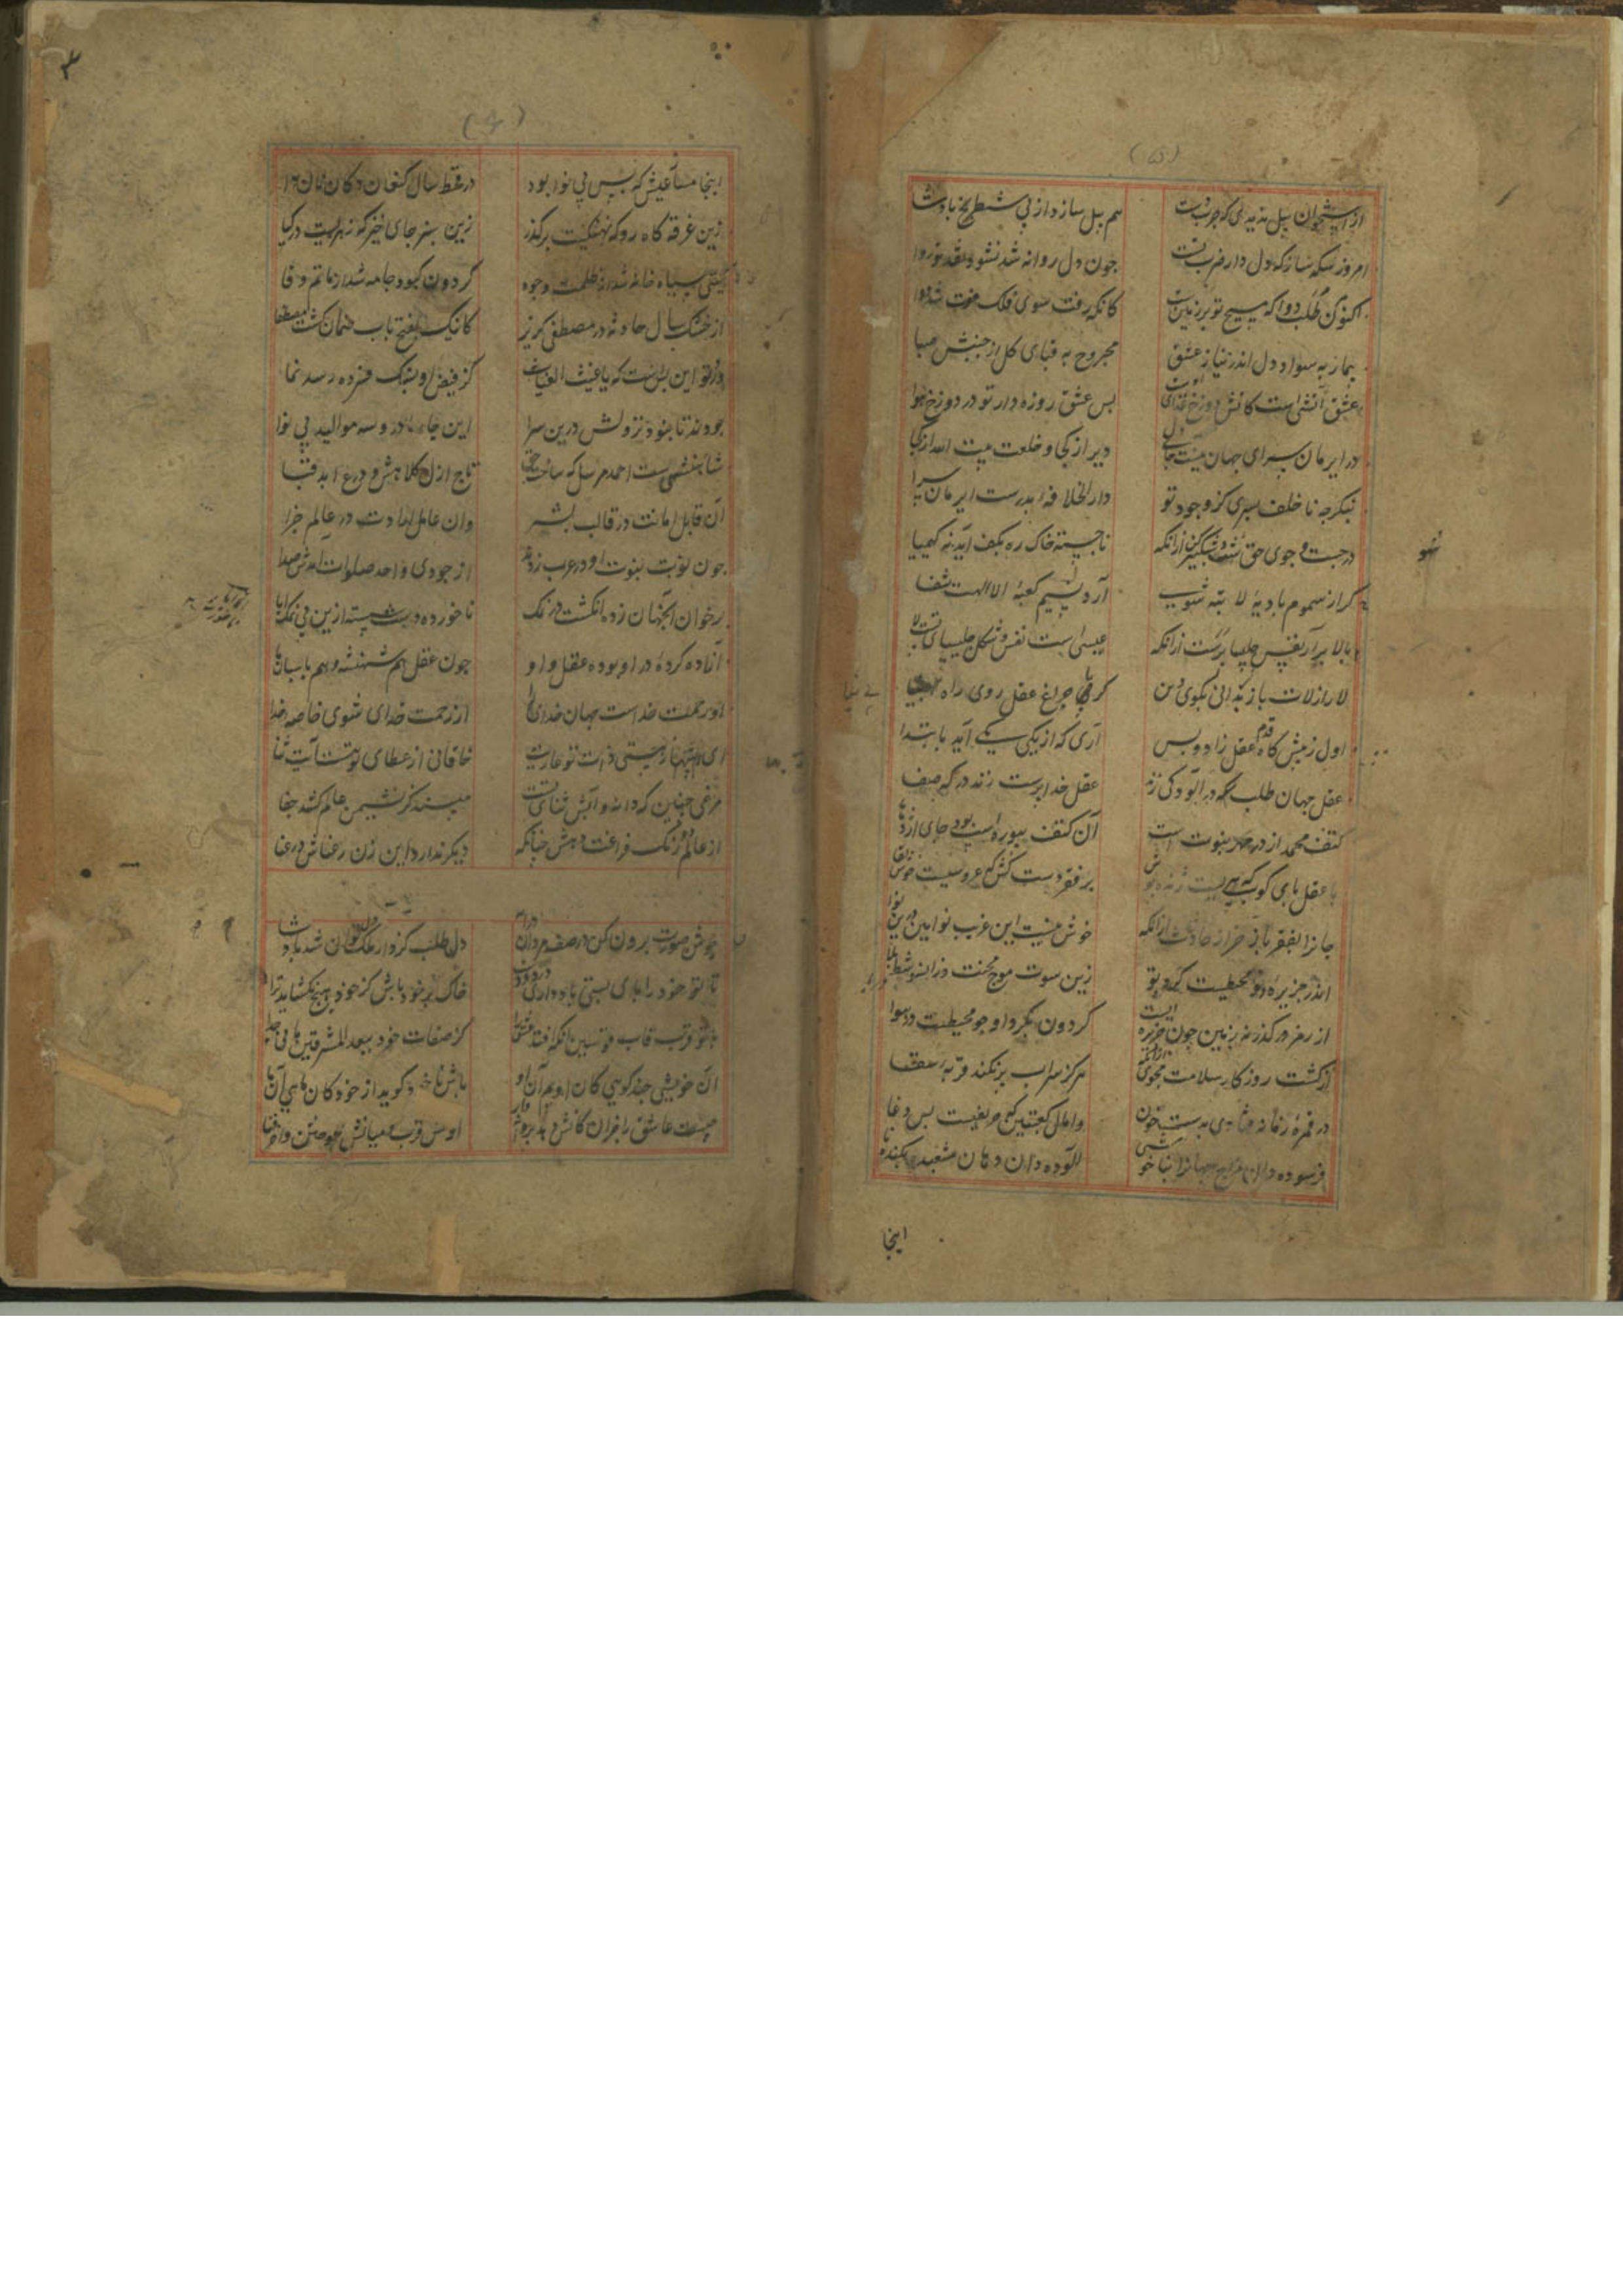 (۵)
از استخوان پیل ندیدی که چرب دست هم پیل سازد از پی شطرنج پادشا
امروز سکه ساز که دل دار ضرب تست چون دل روانه شد نشود نقد تو روا
اکنون طلب دوا که مسیح تو بر زمین کانگه که رفت سوی فلک فوت شد دوا
بیمار به سواد دل اندر نیاز عشق مجروح به قبای گل از جنبش صبا
عشق آتشی است کاتش دوزخ غذای اوست بس عشق روزه دار تو در دوزخ هوا
در ایرمان سرای جهان نیست جای دل دیر از کجا و خلعت بیت الله از کجا
بنگر چه ناخلف پسری کز وجود تو دار الخلافه پدرست ایرمان سرا
در جست و جوی حق شو و شبگیر کن ازانکه ناجسته خاک ره بکف آید نه کیمیا
گر از سموم بادیهٔ لا تبه شوی آرد نسیم کعبهٔ الا الهت شفا
بالا برآر نفس چلیپا پرست ازانکه عیسی است نفس و شکل چلیپای تست لا
لا را ز لات باز ندانی بکوی دین گر بی چراغ عقل روی راه
اول ز پیشگاه قدم عقل زاد و بس آری که از یکی یکی آید بابتدا
عقل جهان طلب در آلودگی زند عقل خدا پرست زند درگه صفا
کتف محمد از در مهر نبوت است آن کتف بیوراسب بود جای اژدها
با عقل پای کوب که پیریست ژنده پوش بر فقر دست کش که عروسیست خوش لقا
جان را بفقر باز خر از حادثات ازانکه خوش نیست این غریب نوایین درین نوا
اندر جزیره و محیطیست گرد تو زین سوت موج محنت و زانسو شط بلا
از رمز در گذر که زمین چون جزیره ایست گردون بگرد او چو محیطست در هوا
از گشت روزگار سلامت مجوی ازانکه هرگز سراب پر نکند قربهٔ سقا
در قمرهٔ زمانه فتادی بدست خون وامال کعبتین که حریفیست بس دغا
فرسوده دان مزاج جهان را بناخوشی آلوده دان دهان مشعبد بگندنا
اینجا
(۶)
اینجا مساز عیش که بس بی نوا بود در قحط سال کنعان دکان نانوا
زین غرقه گاه رو که نهنگیست بر گذر زین سبزه جای خیز که زهریست در گیا
گیتی سیاه خانه شد از ظلمت وجوه گردون کبود جامه شد از ماتم وفا
از خشک سال حادثه در مصطفی گریز کانیک بفتح باب ضمان گشت مصطفا
ورد تو این بس است که یا غیث الغیاث کز فیض او بسنگ فسرده رسد نما
جودی ندید تا بنبود نزولش درین سرا این چار مادر و سه موالید بی نوا
شاهنشهی است احمد مرسل که ساخت حق تاج ازل کلاهش و درع ابد قبا
آن قابل امانت در قالب بشر وان عامل ارادت در عالم جزا
چون نوبت نبوت او در عرب زدند از جودی و احد صلوات آمدش صدا
بر خوان این جهان زده انگشت در نمک ناخورده دست شسته ازین بی نمک ابا
آزاده کردهٔ در او بوده عقل و او چون عقل هم شهنشه و هم پاسبان ما
او رحمت خداست جهان خدای را از رحمت خدای شوی خاصه خدا
ای هست‌ها ز هستی ذات تو عاریت خاقانی از عطای تو هست آیت ثنا
مرغی چنین که دانه و آبش ثنای تست مپسند کز نشیمن عالم کشد جفا
از عالم دو رنگ فراغت دهش چنانکه دیگر ندارد این زن رعناش در عنا
جوش صورت برون کن در صف مردان درآ دل طلب کز دار ملک دل توان شد پادشا
تا تو خود را پای بستی باد داری در دو دست خاک بر خود پاش کز خود هیچ نگشاید ترا
با تو قرب قاب قوسین آنگه افتد عشق را کز صفات خود ببعد المشرقین مانی جدا
آن خویشی چند گویی کان اویم آن او باش تا او گوید از خود کان مایی آن ما
چیست عاشق را جز آن کاتش دهد پروانه وار اولش قرب و میانش سوختن و آخر فنا